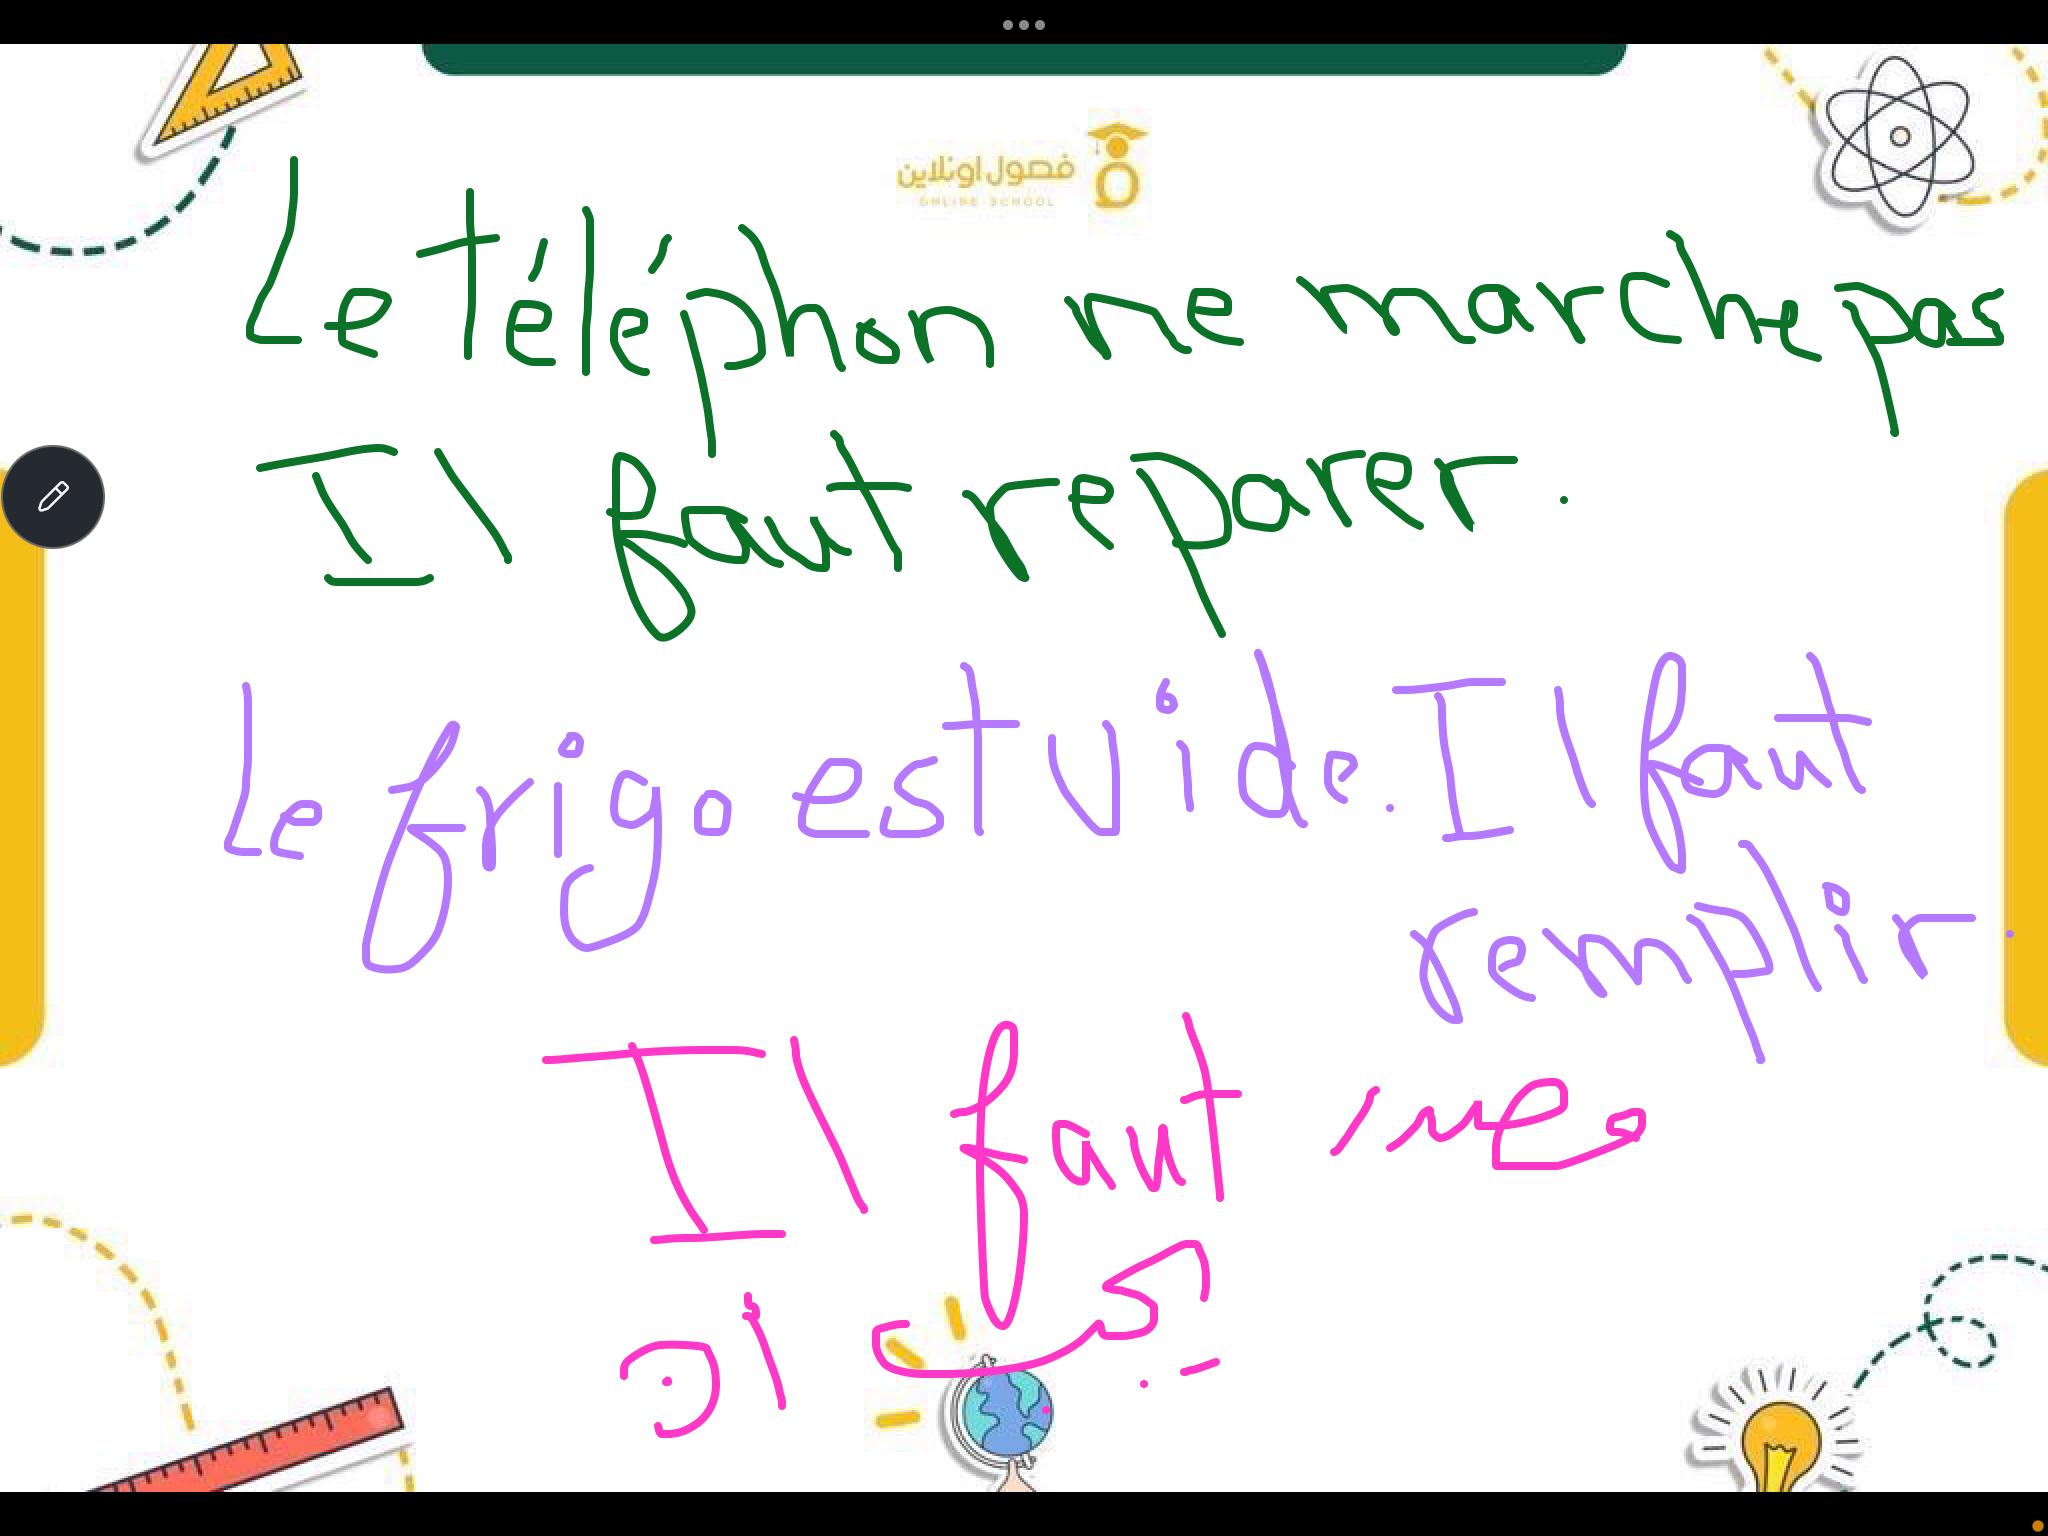 فصول اونلاين
ONLINE SCHOOL
Le téléphon ne marche pas
Il faut reparer.
Le frigo est vide. Il faut
remplir.
Il faut
ينبغي ان